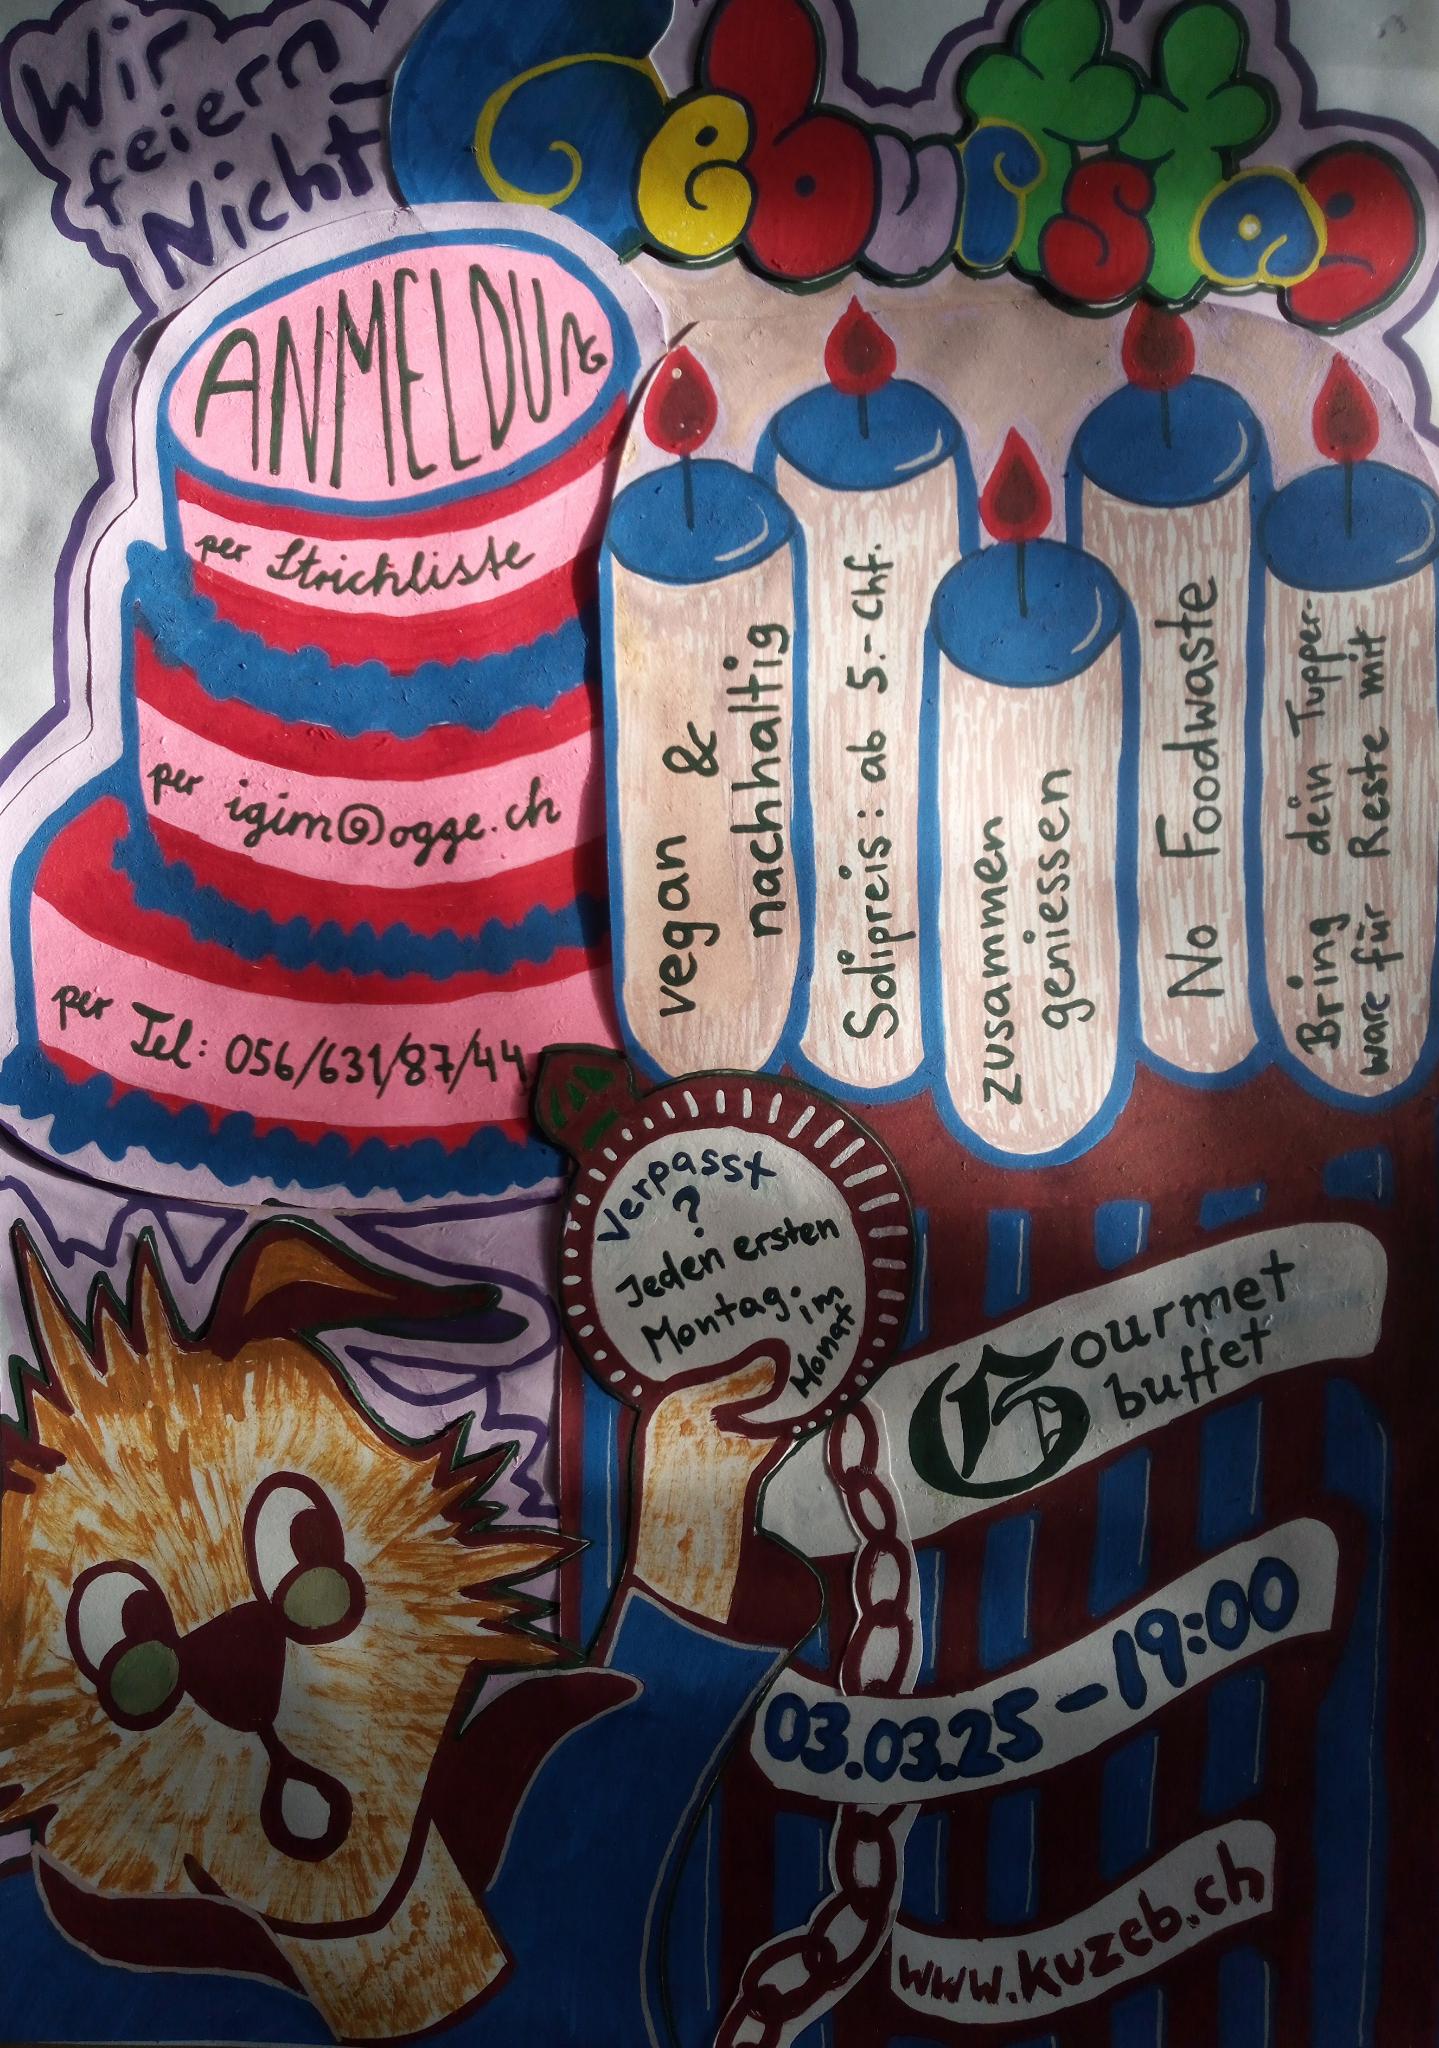 Wir
feiern
Nicht-
Geburtstag
ANMELDUNG
per Strichliste
per igim@ogge.ch
per Tel: 056/631/87/44
vegan &
nachhaltig
Solipreis: ab 5.- Chf.
zusammen
geniessen
No Foodwaste
Bring dein Tupper-
ware für Reste mit
Verpasst
?
Jeden ersten
Montag im
Monat
Gourmet
buffet
03.03.25 - 19:00
www.kuzeb.ch